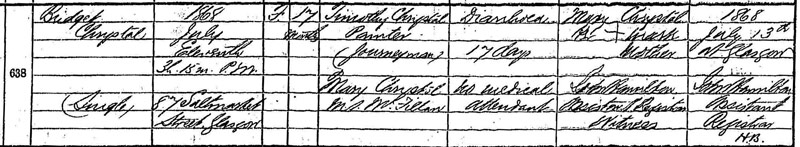 638
Bridget Chrystal
(Single)
1868
July
Eleventh
3h. 15m. P.M.
87 Saltmarket
Street, Glasgow
F.
17
months
Timothy Chrystal
Painter
(Journeyman)
Mary Chrystal
M.S. McLellan
Diarrhoea
17 days
No medical
attendant
Mary Chrystal
Her X mark
Mother
Hamilton
Assistant Registrar
Witness
1868
July 13th
At Glasgow
Hamilton
Assistant
Registrar
H.B.